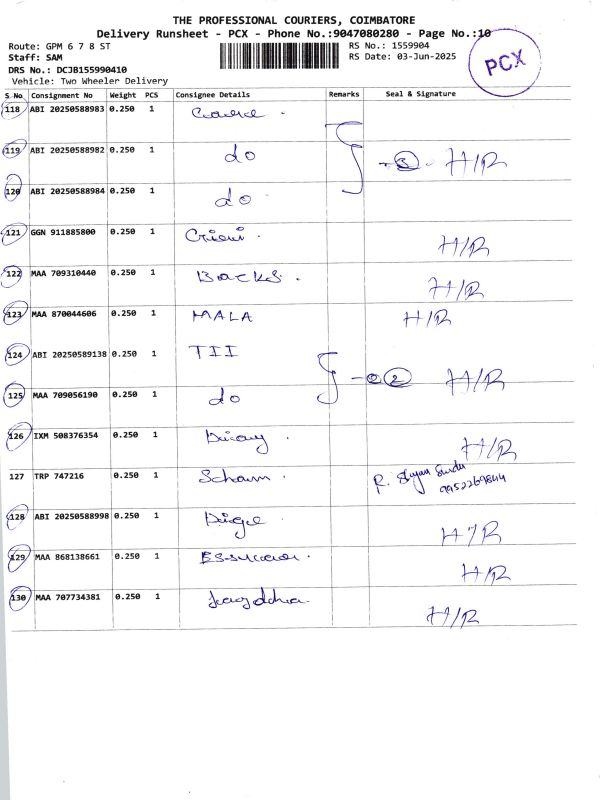 THE PROFESSIONAL COURIERS, COIMBATORE
Delivery Runsheet - PCX - Phone No.:9047080280 - Page No.:10
Route: GPM 6 7 8 ST
RS No.: 1559904
Staff: SAM
RS Date: 03-Jun-2025
DRS No.: DCJB155990410
Vehicle: Two Wheeler Delivery
PCX
S No Consignment No Weight PCS Consignee Details Remarks Seal & Signature
118 ABI 20250588983 0.250 1
119 ABI 20250588982 0.250 1 do - 3 - H/R
120 ABI 20250588984 0.250 1 do
121 GGN 911885800 0.250 1 H/R
122 MAA 709310440 0.250 1 H/R
123 MAA 870044606 0.250 1 MALA H/R
124 ABI 20250589138 0.250 1 TII
125 MAA 709056190 0.250 1 do 2 H/R
126 IXM 508376354 0.250 1 H/R
127 TRP 747216 0.250 1 R.
128 ABI 20250588998 0.250 1 H/R
129 MAA 868138661 0.250 1 H/R
130 MAA 707734381 0.250 1 H/R